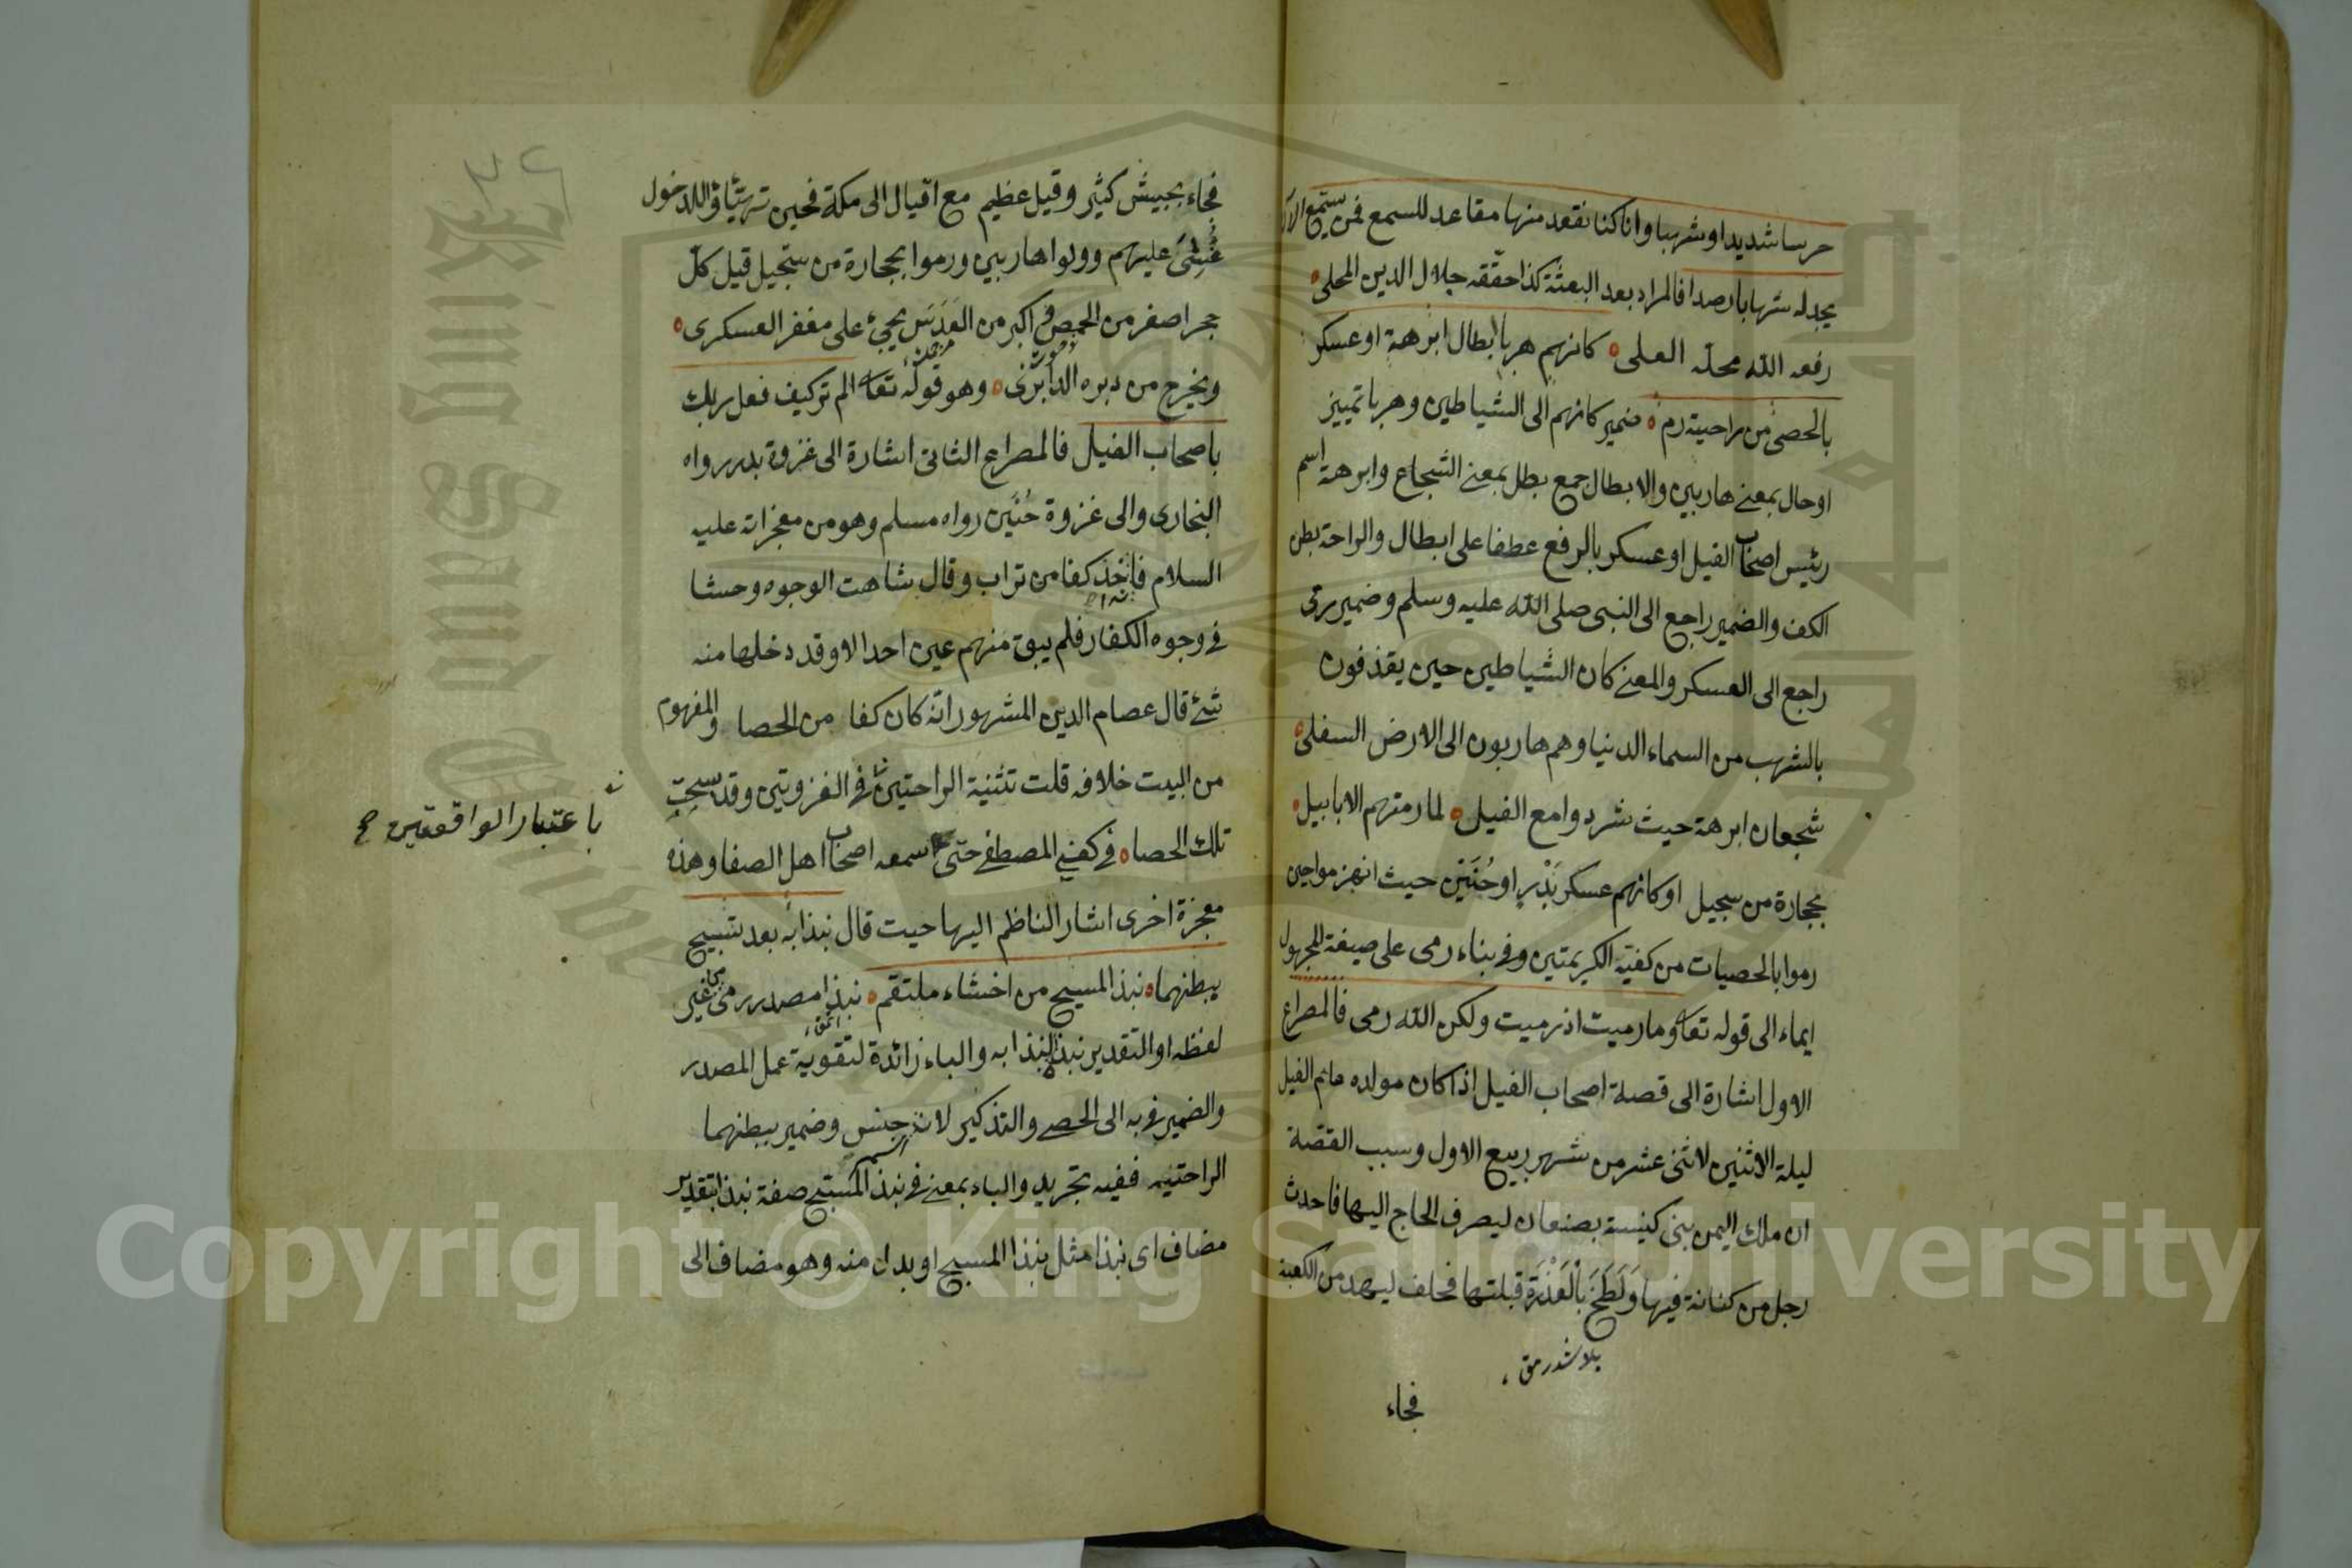 حرسا شديدا وشهبا وانا كنا نقعد منها مقاعد للسمع فمن يستمع الآن
يجد له شهابا رصدا فالمراد بعد البعثة كذا حققه جلال الدين المحلى
رفعه الله محله العلى كانهم هربا ابطال ابرهة او عسكر
بالحصى من راحتيه رم ضمير كانهم الى الشياطين وهربا تمييز
او حال بمعنى هاربين والابطال جمع بطل بمعنى الشجاع وابرهة اسم
رئيس اصحاب الفيل او عسكر بالرفع عطفا على ابطال والراحة بطن
الكف والضمير راجع الى النبى صلى الله عليه وسلم وضمير رمى
راجع الى العسكر والمعنى كان الشياطين حين يقذفون
بالشهب من السماء الدنيا وهم هاربون الى الارض السفلى
شجعان ابرهة حيث شردوا مع الفيل لما رمتهم الابابيل
بحجارة من سجيل او كانهم عسكر بَدْرٍ او حُنَيْن حيث انهزموا حين
رموا بالحصيات من كفيه الكريمتين وفى بناء رمى على صيغة المجهول
ايماء الى قوله تعا وما رميت اذ رميت ولكن الله رمى فالمصراع
الاول اشارة الى قصة اصحاب الفيل اذ كان مولده عام الفيل
ليلة الاثنين لاثنى عشر من شهر ربيع الاول وسبب القصة
ان ملك اليمن بنى كنيسة بصنعان ليصرف الحاج اليها فاحدث
رجل من كنانة فيها وَلَطَخَ بالعَذْرَة قبلتها فحلف ليهدمن الكعبة
فجاء
فجاء بجيش كثير وقيل عظيم مع اقيال الى مكة فحين تهيئاؤ اللدخول
غُشِىَ عليهم وولوا هاربين ورموا بحجارة من سجيل قيل كل
حجر اصغر من الحمص و اكبر من العَدَس يجئ على مغفر العسكرى
ويخرج من دبره وهو قوله تعا الم تر كيف فعل ربك
باصحاب الفيل فالمصراع الثانى اشارة الى غزوة بدر رواه
البخارى والى غزوة حُنَين رواه مسلم وهو من معجزاته عليه
السلام فاخذ كفا من تراب وقال شاهت الوجوه وحشا
فى وجوه الكفار فلم يبق منهم عين احد الا وقد دخلها منه
شئ قال عصام الدين المشهور انه كان كفا من الحصا والمفهوم
من البيت خلافه قلت تثنية الراحتين فى الغزوتين وقد سبحت
باعتبار الواقعتين صح
تلك الحصاه فى كفى المصطفى حتى سمعه اصحاب اهل الصفا وهذه
معجزة اخرى اشار الناظم اليها حيث قال نبذا به بعد تسبيح
ببطنهما نبذ المسبح من احشاء ملتقم نبذا مصدر رمى من غير
لفظه او التقدير نبذ نبذا به والباء زائدة لتقوية عمل المصدر
والضمير فى به الى الحصى والتذكير لانه اسم جنس وضمير ببطنهما
الراحتيه ففيه تجريد والباء بمعنى فى نبذ المسبح صفة نبذا بتقدير
مضاف اى نبذا مثل نبذ المسبح او بدل منه وهو مضاف الى
Copyright © King Saud University
King Saud University